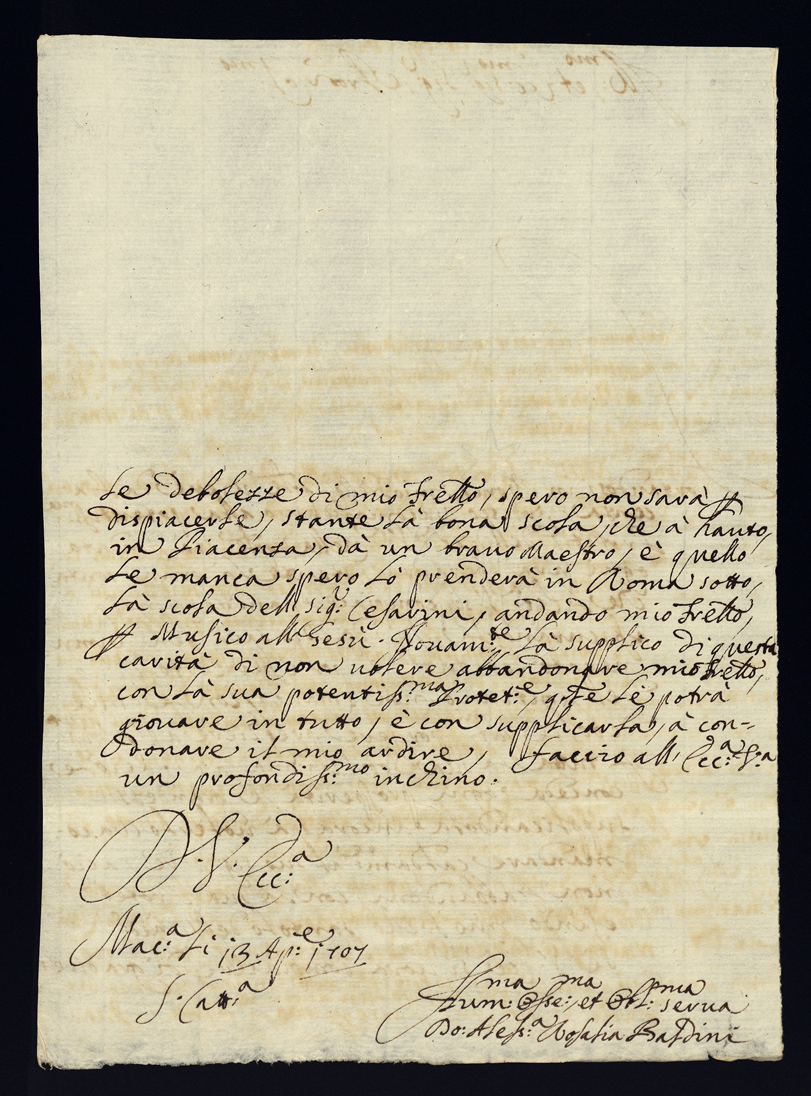 le debolezze di mio Frello, spero non sarà p
dispiacerle, stante là bona scola, che à hauto,
in Piacenza, dà un bravo Maestro, è quello
le manca spero lò prenderà in Roma sotto,
là scola dell Sig.r Cesarini, andando mio Frello,
p Musico all Gesù. Nouam.te là supplico di questa
carità di non volere abbandonare mio Frello,
con là sua potentiss.ma Protet.e, che lè potrà
giouare in tutto, è con supplicarla, à con=
donare il mio ardire, faccio all' Ecc.a V.a
un profondiss.mo inchino.
D. V. Ecc.a
Mac.a Li 13 Ap.e 1707
S. Catt.a
Hum.ma Osse.ma et Obl.ma serua
Do: Aless.a Rosalia Baldini